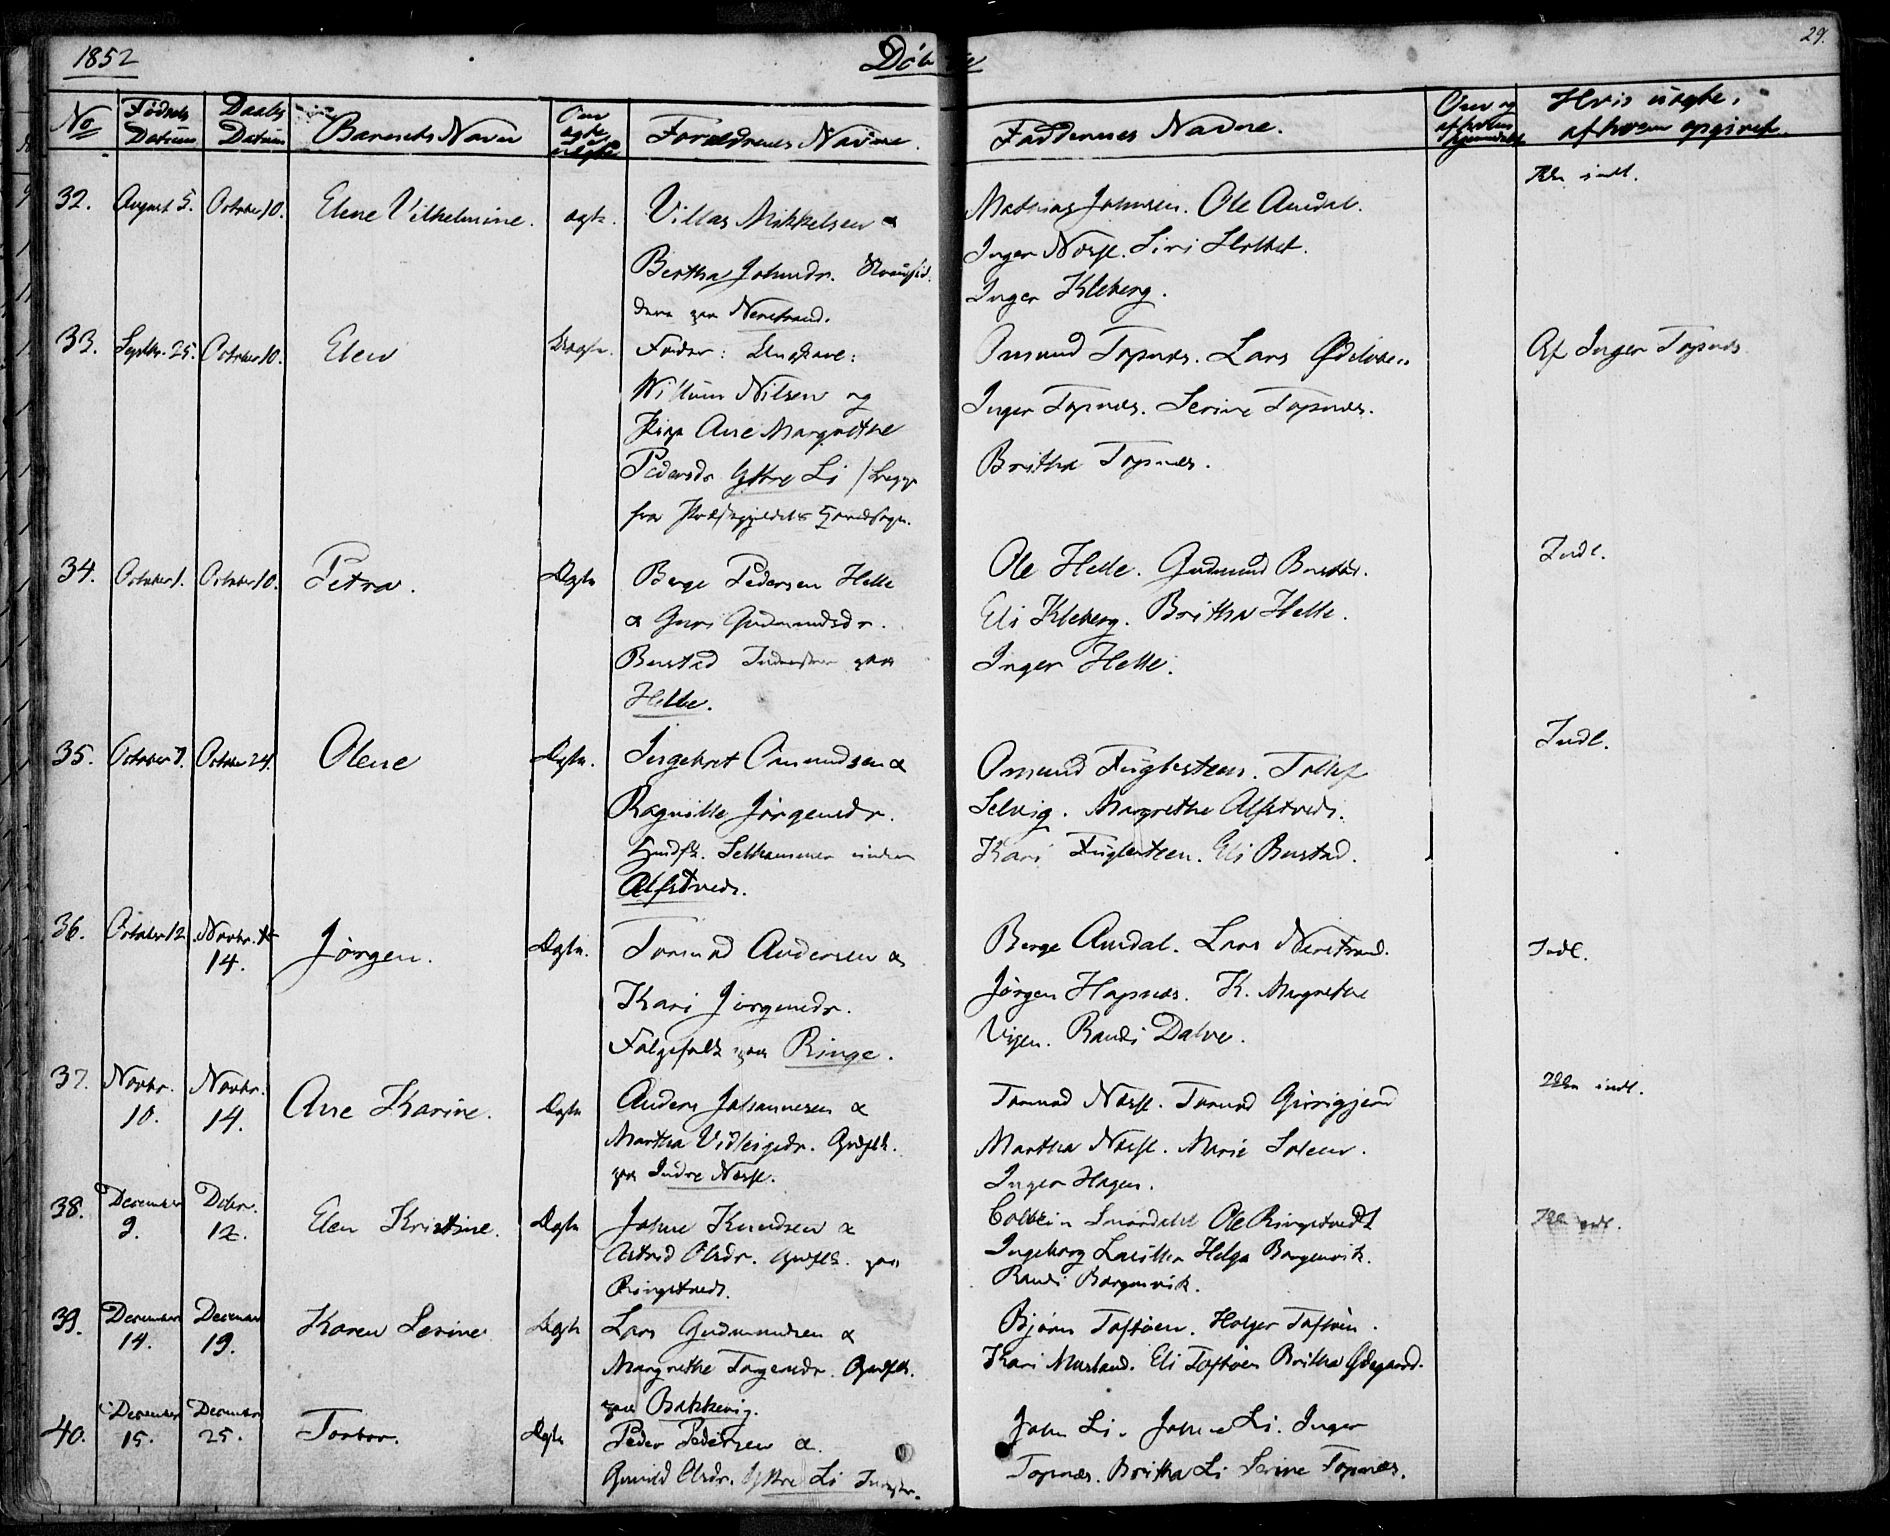 1852
Döbte
29.
No
Fødsels Datum
Daabs Datum
Barnets Navn
Om ægte eller uægte
Forældrenes Navne.
Faddernes Navne.
Hvis uægte,
af hvem opgivet.
32. August 5. October 10. Elene Vilhelmine. ægte. Villas Mikkelsen &
Bertha Johnsdr.
paa Nerstrand.
Mathias Johnsen. Ole Amdal.
Inger Norse. Siri
Inger Kleberg.
indl.
33. Septbr. 25. October 10. Elen Uægte. Fader: Ungkarl:
Willum Nilsen og
Pige Ane Margrethe
Pedersdr Yttre Li / begge
fra Præstegjeldets Hovedsogn.
Omund Topnes. Lars
Inger Topnæs. Serine Topnæs.
Britha Topnæs.
Af Inger Topnæs
34. October 1. October 10. Petra. Ægte Berge Pedersen Helle
& Guri Gudmundsdr.
Bustad Inderster paa
Helle.
Ole Helle. Gudmund Bustad.
Eli Kleberg. Britha Helle.
Inger Helle.
Indl.
35. October 7. October 24. Olene Ægte. Ingebret Omundsen &
Ragnille Jørgensdr.
Huusfk. under
Alfstveds.
Omund Fuglesteen. Tollef
Selvig. Margrethe Alfstveds.
Kari Fuglesteen. Eli Bustad.
Indl.
36. October 12 Novbr.
14. Jørgen. Ægte. Tormod Andersen &
Kari Jørgensdr.
Folgefolk paa Ringe.
Berge Amdal. Lars Nerstrand.
Jørgen Hapnes. K. Margrethe
Vigen. Randi Dalve.
Indl.
37. Novbr.
10. Novbr.
14. Ane Karine. Ægte Anders Johannesen &
Martha Vidleigsdr. Grdflk.
paa Indre Norse.
Tormod Norse. Tormod
Martha Norse. Marie
Inger Hagen.
indl.
38. December
9. Decbr.
12. Elen Kristine. Ægte Johne Knudsen &
Astrid Olsdr. Grdflk. paa
Ringstveds.
Ole Ringstvedt
Ingeborg Helga Borgenvik.
Randi Borgenvik.
39. December
14. December
19. Karen Serine Ægte Lars Gudmundsen &
Margrethe Torgersdr. Gaardflk.
paa Bakkevig.
Bjørn Toftøen. Holger Toftøen.
Kari Musland. Eli Toftøen Britha Ødegaard.
40. December
15. December
25. Torbor. Ægte Peder Pedersen &
Gunild Olsdr. Yttre Li
John Li. Johne Li. Inger
Topnæs. Britha Li Serine Topnæs.